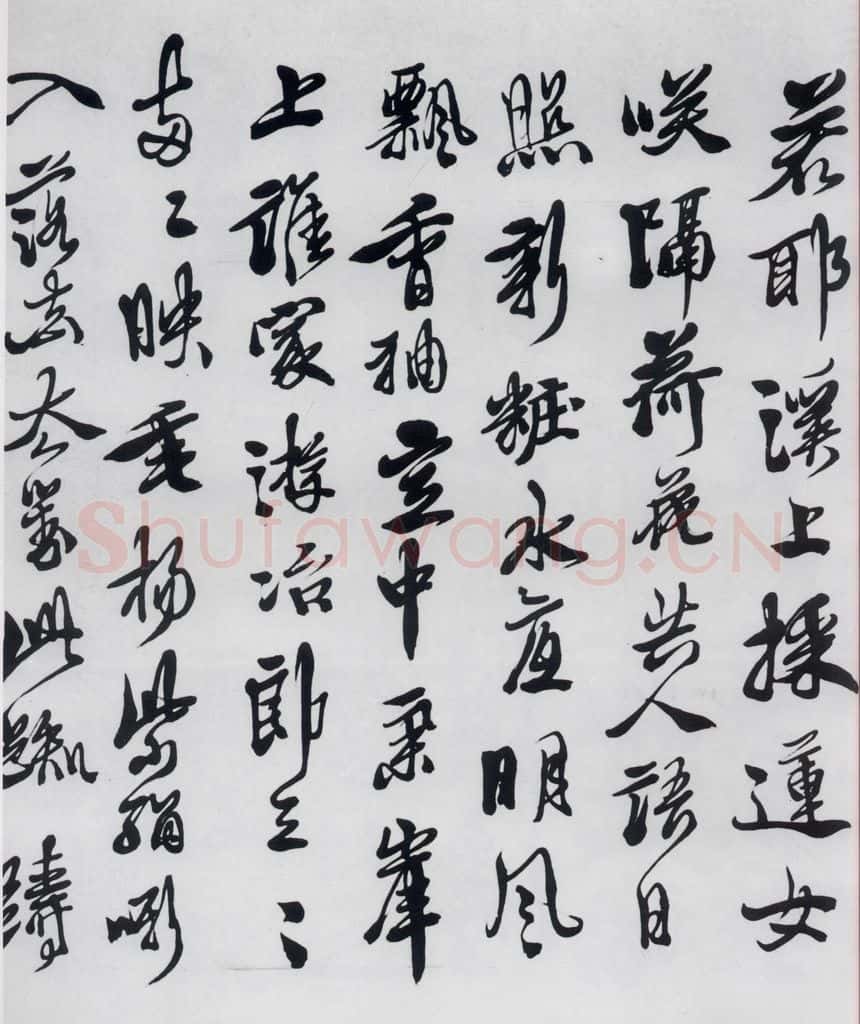 若耶溪上採蓮女
咲隔荷花共人語日
照新粧水底明風
飄香袖空中舉岸
上誰家游冶郎三〻
五〻映垂楊紫騮嘶
入落去此踟躕
Shufawang.CN